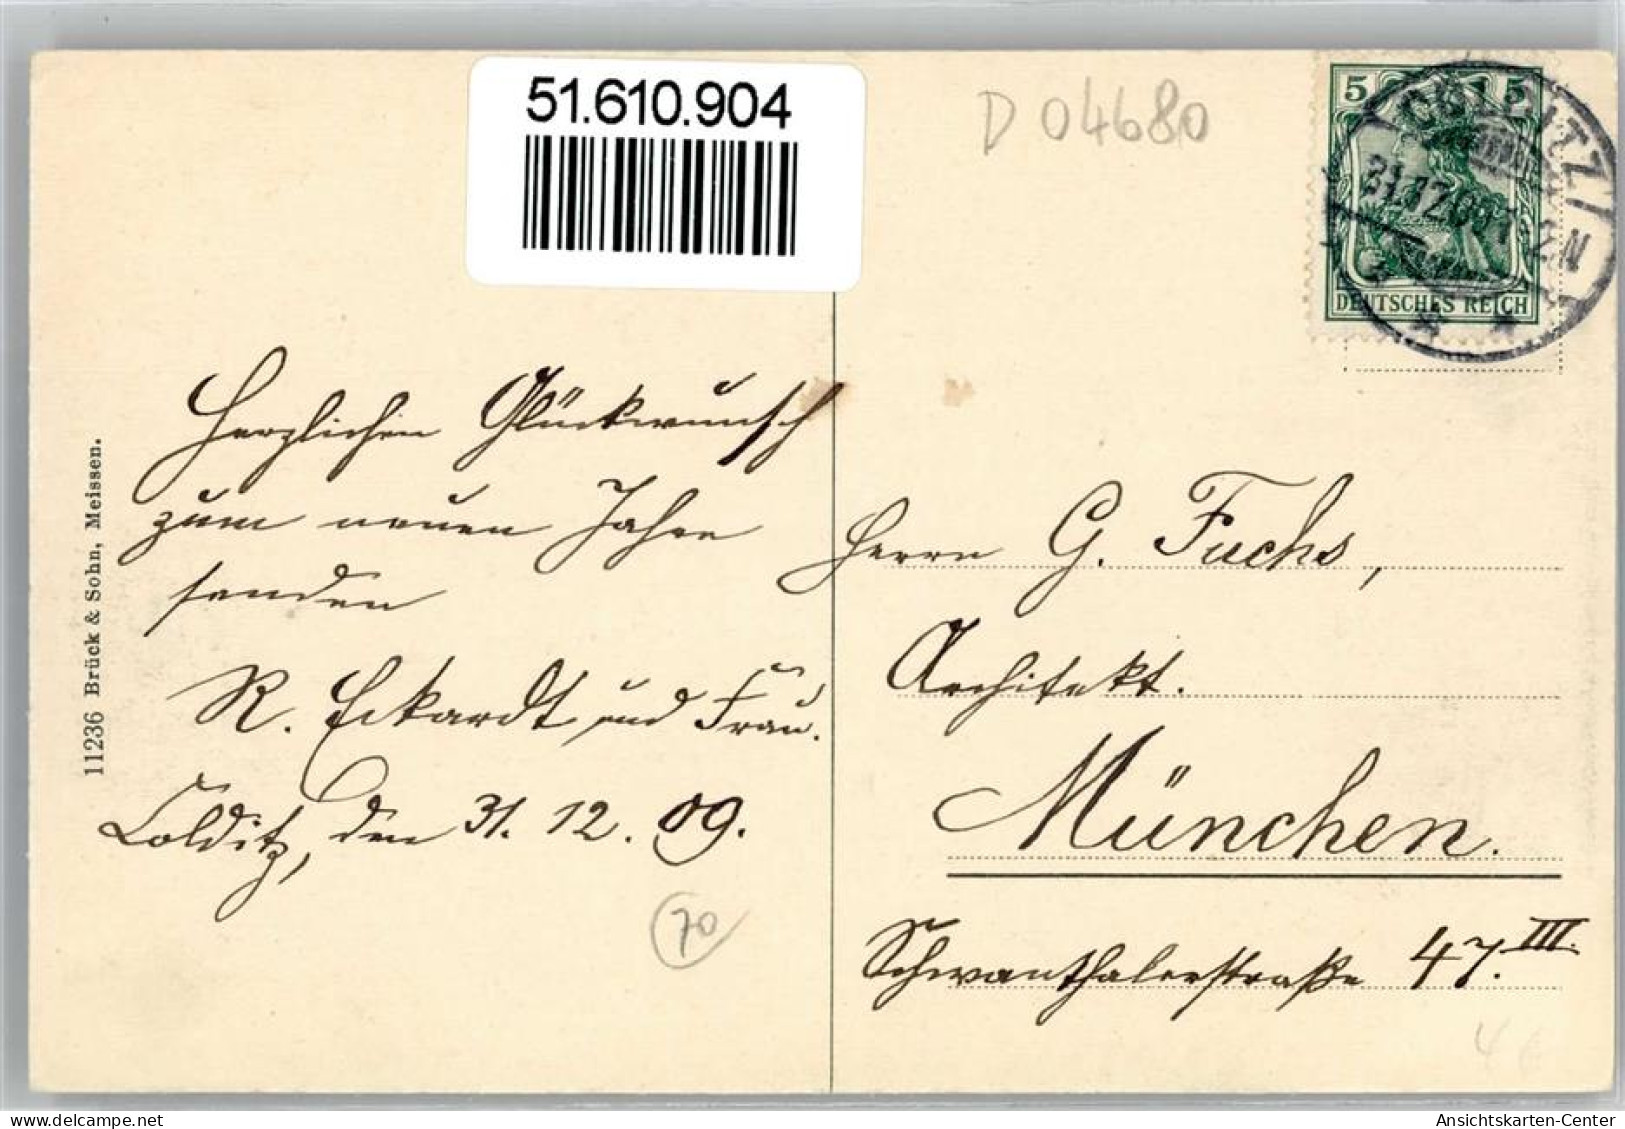 51.610.904
D 04680
5 5
COLDITZ
31.12.09. 1-2N
DEUTSCHES REICH
Herzlichen Glückwunsch
zum neuen Jahre
senden
R. Eckardt und Frau.
Colditz, den 31. 12. 09.
70
11236 Brück & Sohn, Meissen.
Herrn G. Fuchs,
Architekt.
München.
Schwanthalerstraße 47. III.
Ansichtskarten-Center